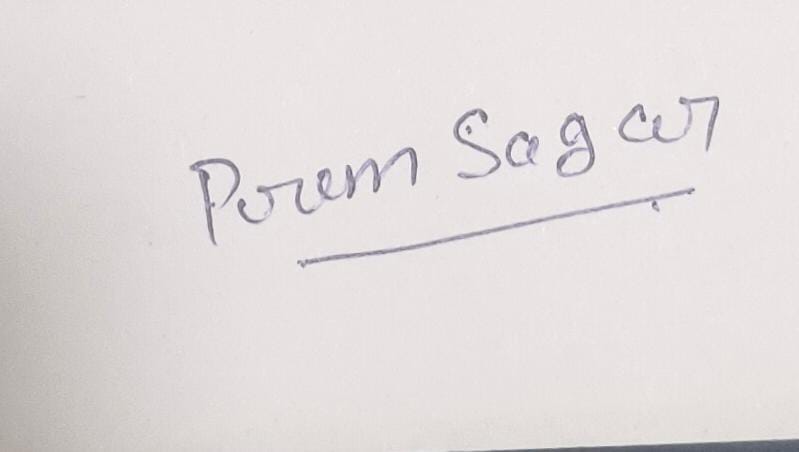 Prem Sagar